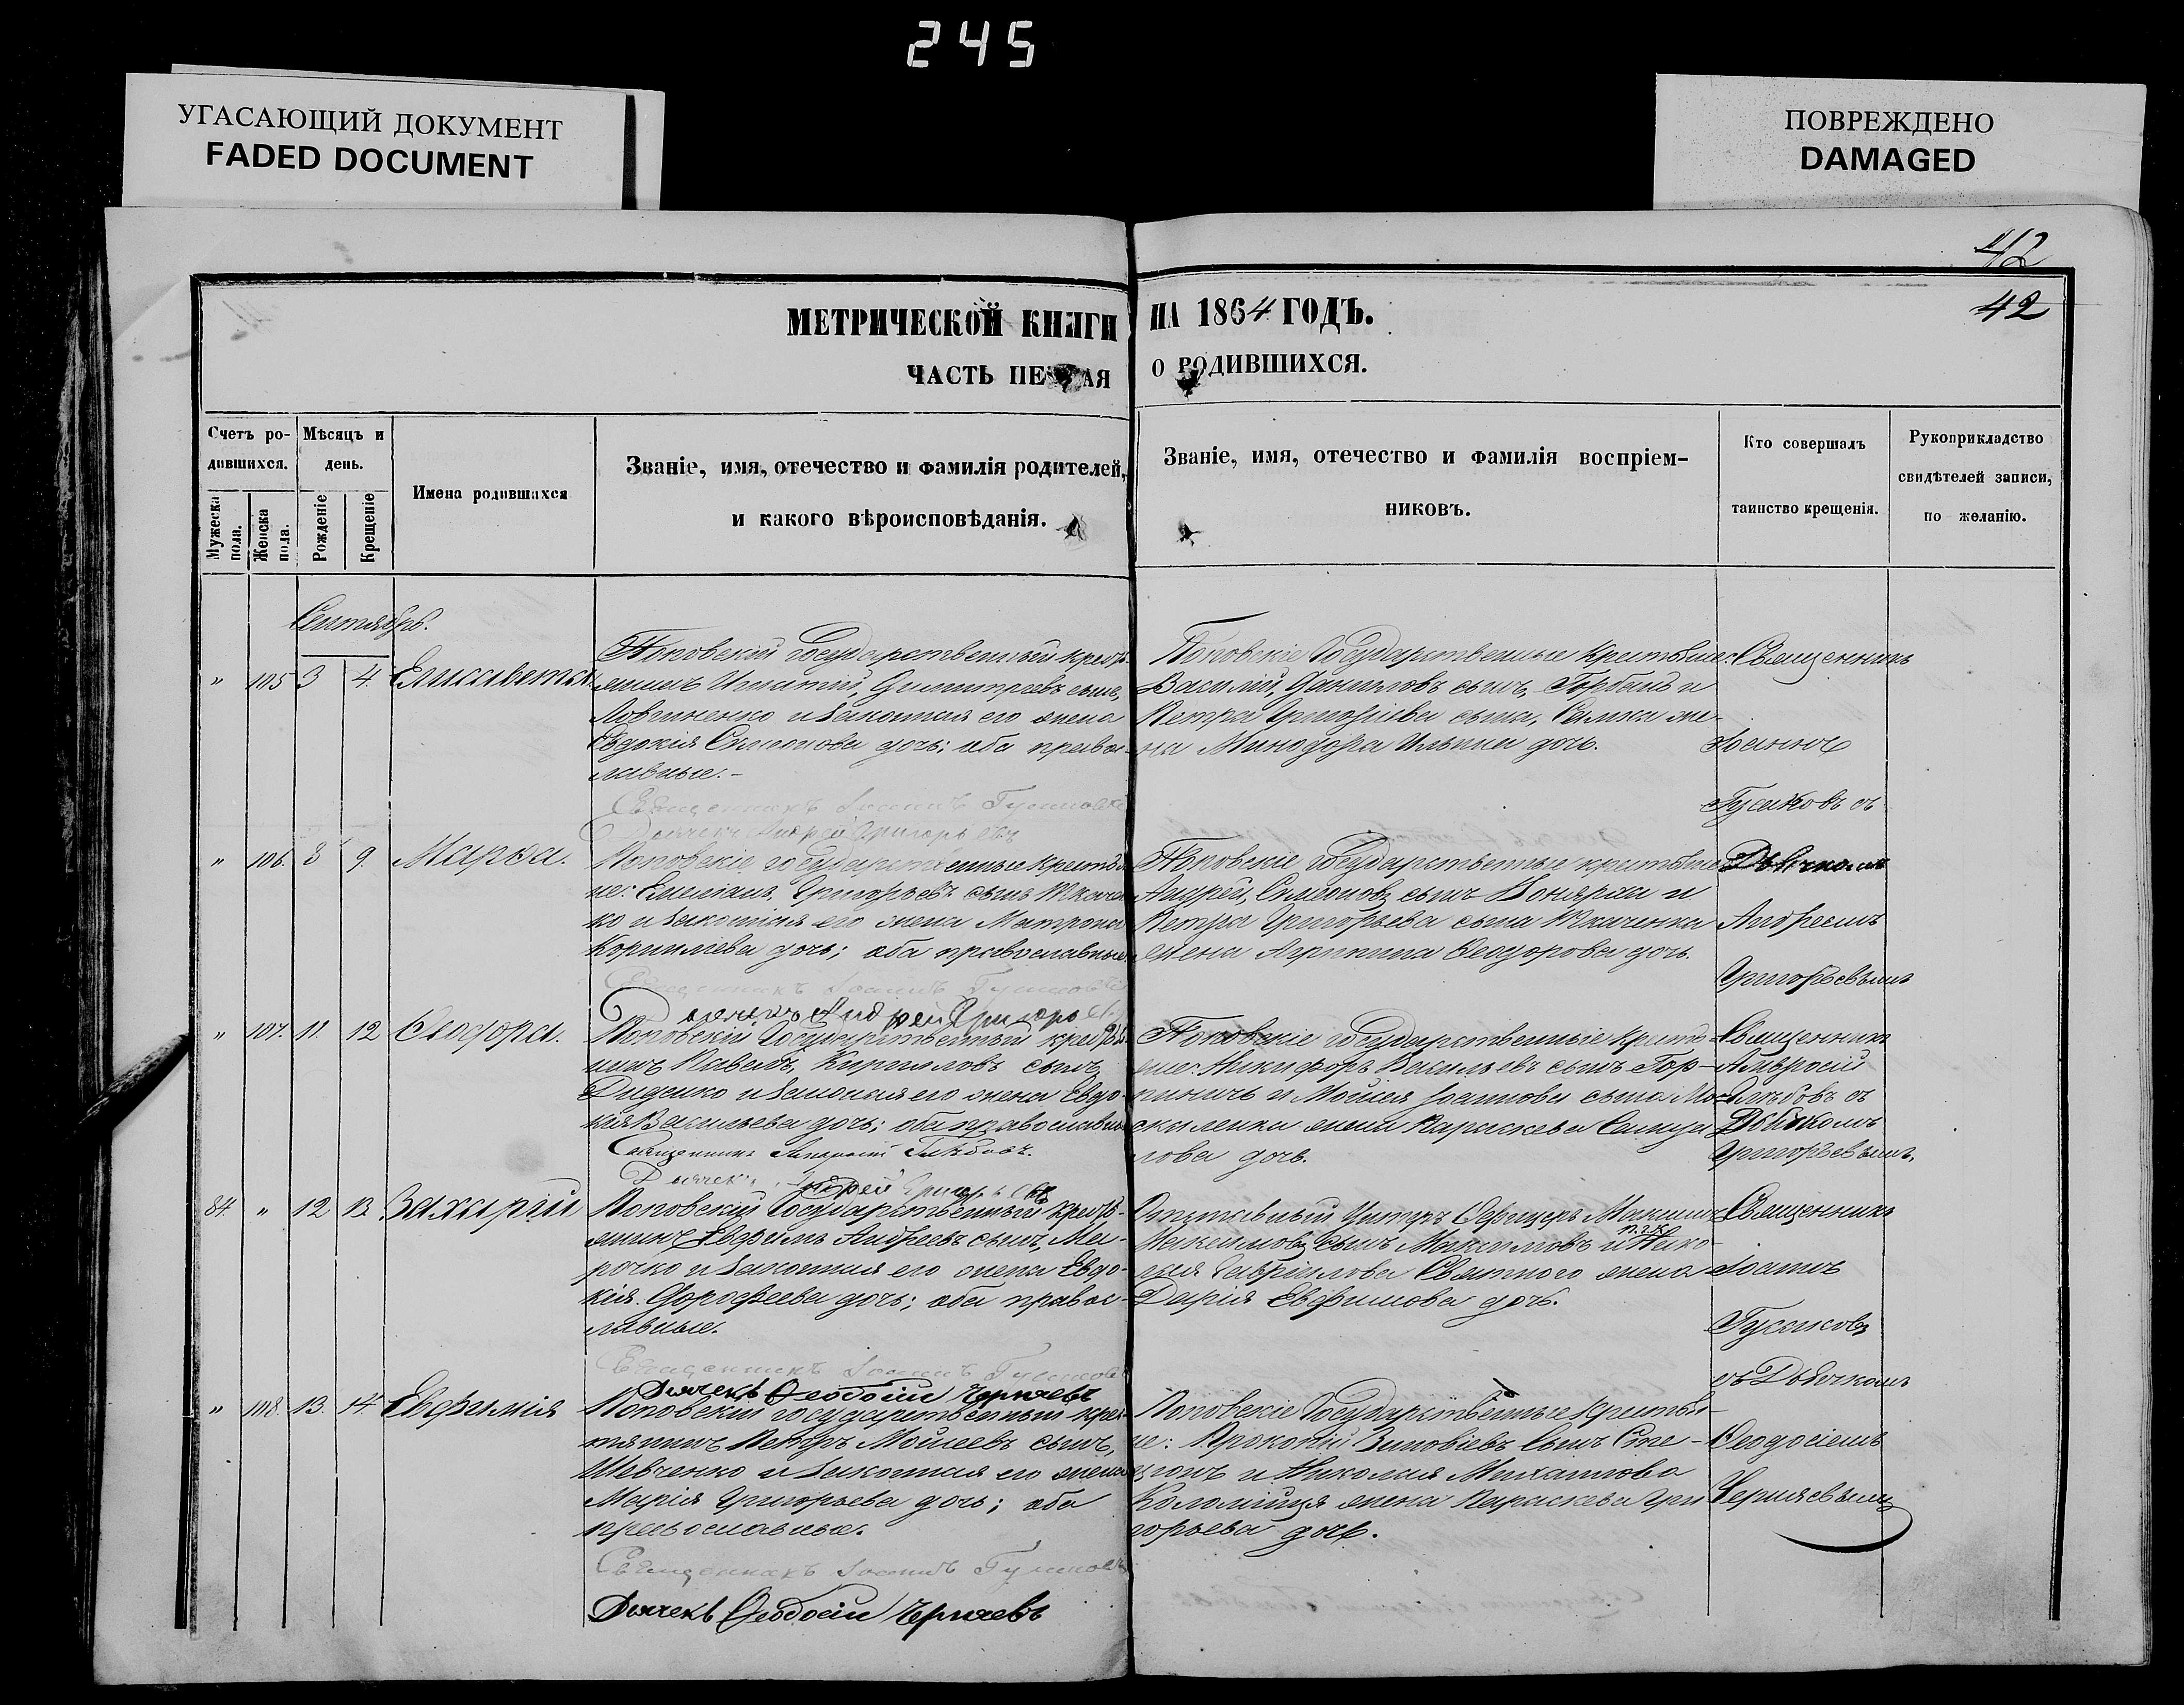 245
УГАСАЮЩИЙ ДОКУМЕНТ
FADED DOCUMENT
ПОВРЕЖДЕНО
DAMAGED
42
42
МЕТРИЧЕСКОЙ КНИГИ НА 1864 ГОДЪ.
ЧАСТЬ ПЕ АЯ О РОДИВШИХСЯ.
Счетъ ро-
дившихся.
Мужеска пола.
Женска пола.
Мѣсяцъ и
день.
Рожденіе
Крещеніе
Имена родившихся
Званіе, имя, отечество и фамилія родителей,
и какого вѣроисповѣданія.
Званіе, имя, отечество и фамилія воспріем-
никовъ.
Кто совершалъ
таинство крещенія.
Рукоприкладство
свидѣтелей записи,
по желанію.
Сентябрь.
" 105 3 4. Елисавета.
Поповскій государственный крест-
янинъ Игнатій, Димитріевъ сынъ,
Логвиненко и законная его жена
Евдокія Симеонова дочь; оба правос-
лавные.-
Священникъ Іоаннъ Гусаковъ
Дьячекъ Андрей Григорьевъ
Поповскіе Государственные крестьяне:
Василій, Даниловъ сынъ, Горбань и
Петра Григоріева сына, жe-
на Минодора Ильина дочь.
Священникъ
Іоаннъ
Гусаковъ съ
" 106. 8 9. Марѳа.
Поповскіе государственные крестья
не: Емеліанъ, Григорьевъ сынъ Ткачен
ко и законная его жена Матрона
Корнилiева дочь; оба православные
Священникъ Іоаннъ Гусаковъ
Дьячекъ Андрей Григорьевъ
Поповскіе государственные крестьяне
Андрей, Симеоновъ сынъ и
Петра Григорьева сына Ткаченка
жена Агрипина Ѳеодорова дочь.
Дьячкомъ
Андреемъ
Григорьевымъ
" 107. 11. 12 Ѳеодора.
Поповскій Государственный крестья
нинъ Павелъ, Кирилловъ сынъ,
Диденко и законная его жена Евдо-
кія Васильева дочь; оба православные
Священникъ Амвросій Глѣбовъ.
Дьячекъ Андрей Григорьевъ
Поповскіе государственные крестья-
не: Никифоръ Васильевъ сынъ Гор-
пиничъ и Мойсея Іоаннова сына Мос-
каленка жена Параскева Самуи
лова дочь.
Священникъ
Амвросій
Глѣбовъ съ
Дьячкомъ
Григорьевымъ.
84. " 12 13. Захарій
Поповскій Государственный кресть-
янинъ Евфимъ Андреевъ сынъ, Ма-
рочко и законная его жена Евдо-
кія Дорофеева дочь; оба правос-
лавные.
Священникъ Іоаннъ Гусаковъ
Дьячекъ Ѳеодосій Черняевъ
Отставный Унтеръ Офицеръ Максимъ
Максимовъ сынъ Максимовъ и Нико-
лая Гавріилова Святного жена
Дарія Евфимова дочь.
Священникъ
Іоаннъ
Гусаковъ
съ Дьячкомъ
" 108. 13. 14. Евфимія
Поповскій государственный крес-
тянинъ Петръ Мойсеевъ сынъ,
Шевченко и законная его жена
Марія Григорьева дочь; оба
православные.
Священникъ Іоаннъ Гусаковъ
Дьячекъ Ѳеодосій Черняевъ
Поповскіе Государственные крестья-
не: Прокопій Зиновіевъ сынъ
и Николая Михаилова
Коломійця жена Параскева Гри
горьева дочь.
Ѳеодосіемъ
Черняевымъ